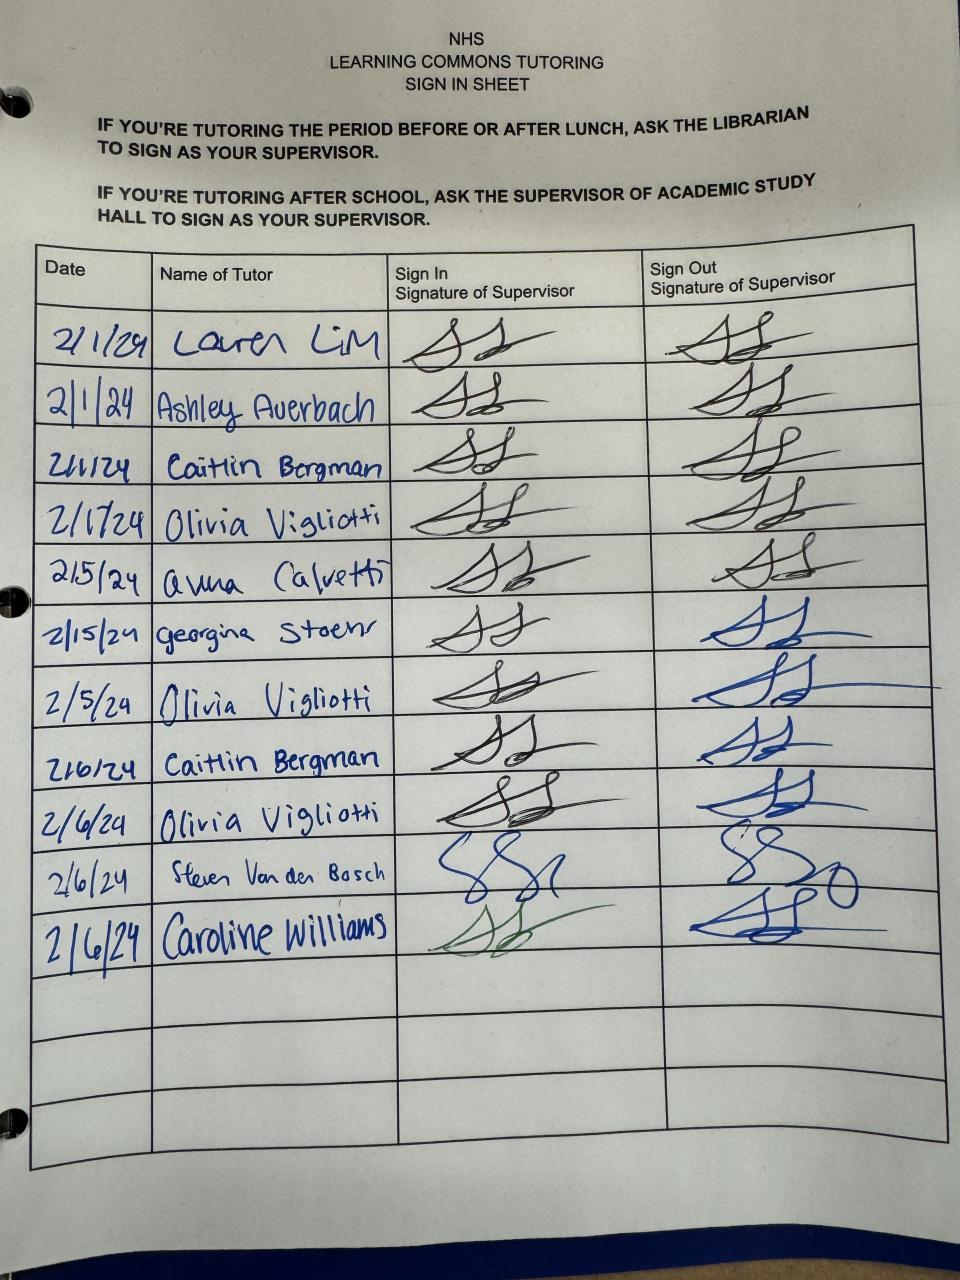 NHS
LEARNING COMMONS TUTORING
SIGN IN SHEET
IF YOU'RE TUTORING THE PERIOD BEFORE OR AFTER LUNCH, ASK THE LIBRARIAN
TO SIGN AS YOUR SUPERVISOR.
IF YOU'RE TUTORING AFTER SCHOOL, ASK THE SUPERVISOR OF ACADEMIC STUDY
HALL TO SIGN AS YOUR SUPERVISOR.
Date Name of Tutor Sign In Signature of Supervisor Sign Out Signature of Supervisor
2/1/24 Lauren Lim
2/1/24 Ashley Auerbach
2/1/24 Caitlin Bergman
2/1/24 Olivia Vigliotti
2/5/24 Anna Calvetti
2/15/24 georgina Stoehr
2/5/24 Olivia Vigliotti
2/6/24 Caitlin Bergman
2/6/24 Olivia Vigliotti
2/6/24 Steven Van den Bosch
2/6/24 Caroline Williams